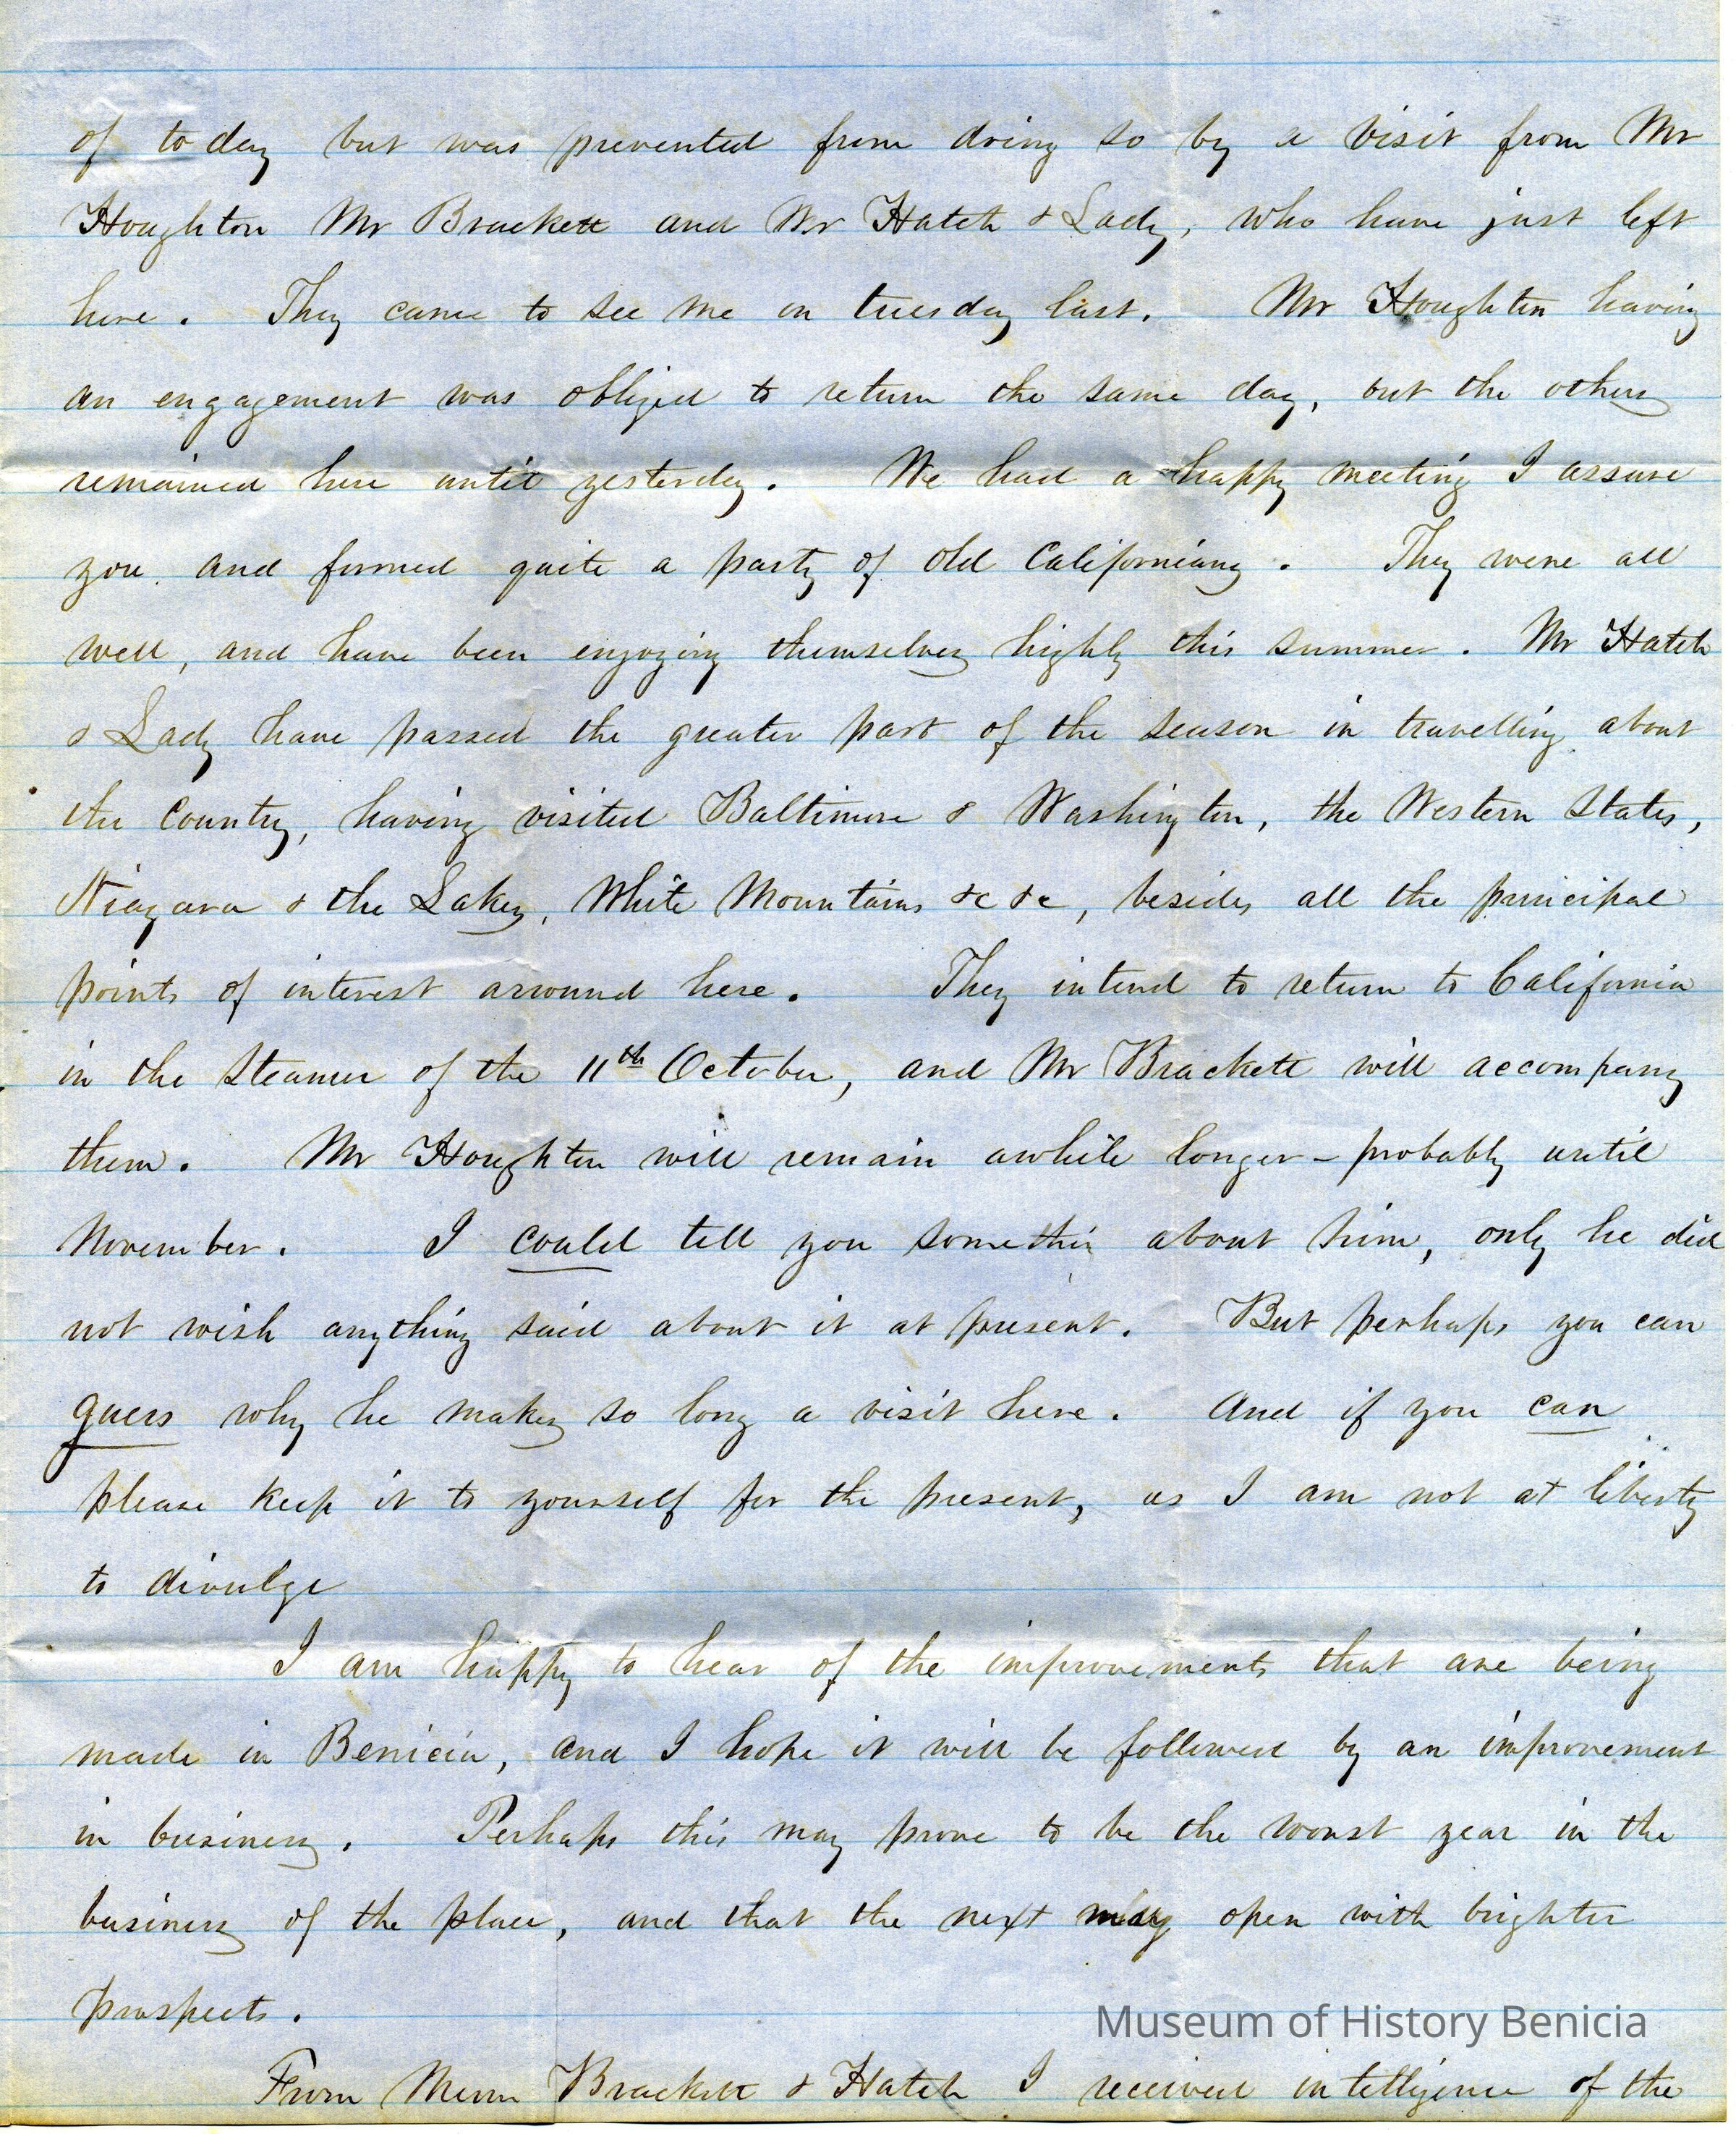 of to day but was prevented from doing so by a visit from Mr
Houghton Mr Brackett and Mr Hatch & Lady, who have just left
here. They came to see me on tuesday last. Mr Houghton having
an engagement was obliged to return the same day, but the others
remained here until yesterday. We had a happy meeting I assure
you and formed quite a party of old Californians. They were all
well, and have been enjoying themselves highly this summer. Mr Hatch
& Lady have passed the greater part of the season in travelling about
the Country, having visited Baltimore & Washington, the Western States,
Niagara & the Lakes, White Mountains &c &c, besides all the principal
points of interest arround here. They intend to return to California
in the Steamer of the 11th October, and Mr Brackett will accompany
them. Mr Houghton will remain awhile longer – probably until
November. I could tell you somethin about him, only he did
not wish anything said about it at present. But perhaps you can
guess why he makes so long a visit here. And if you can
please keep it to yourself for the present, as I am not at liberty
to divulge
I am happy to hear of the improvements that are being
made in Benicia, and I hope it will be followed by an improvement
in business. Perhaps this may prove to be the worst year in the
business of the place, and that the next may open with brighter
prospects.
Museum of History Benicia
From Messrs Brackett & Hatch I received intelligence of the